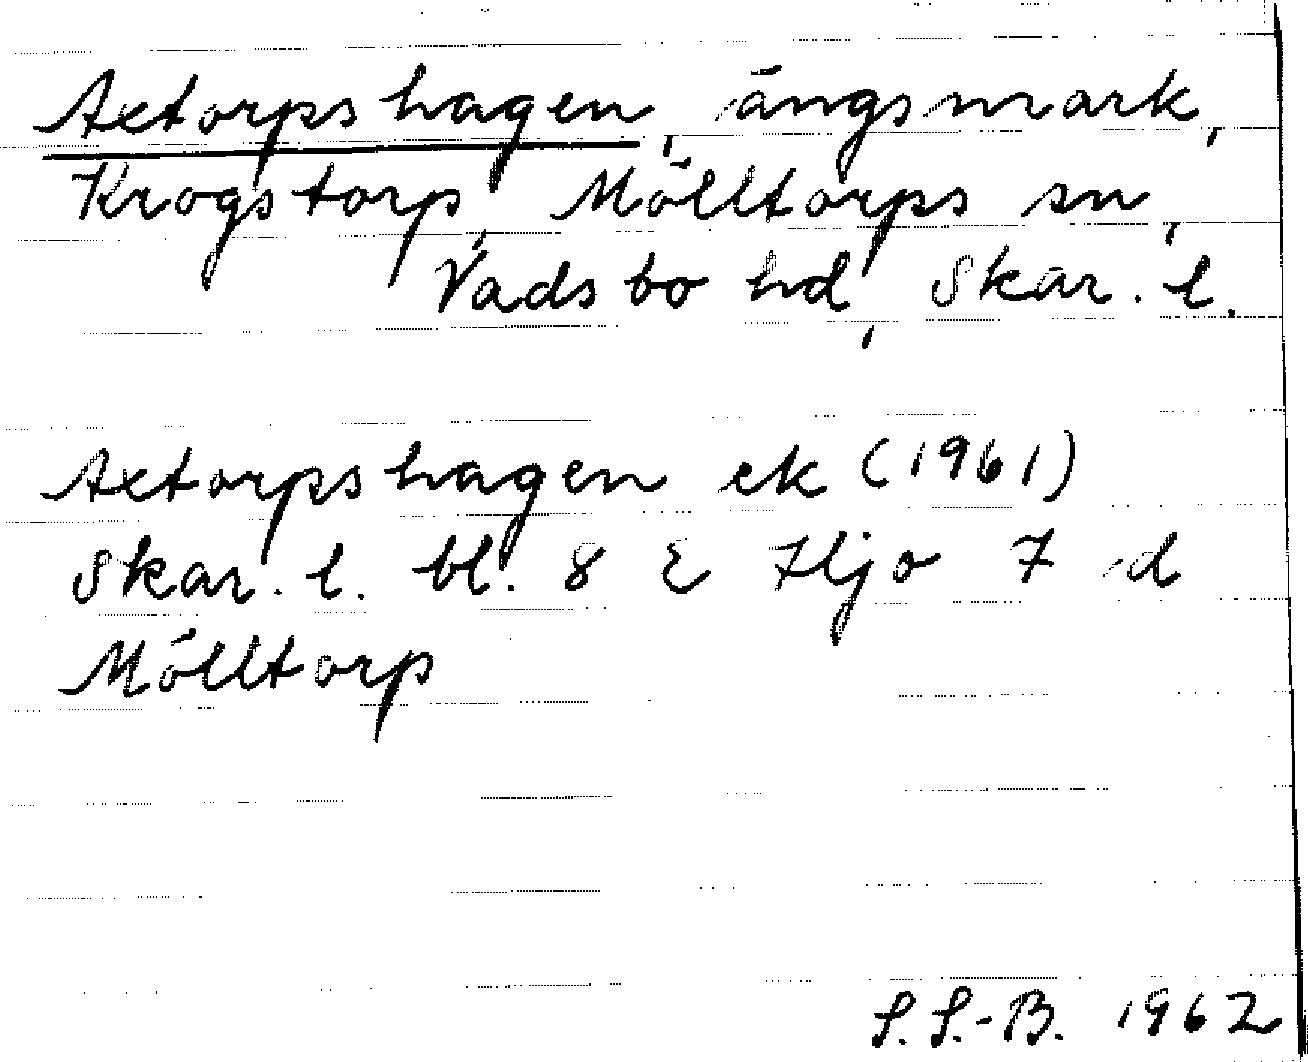 Axtorpshagen, ängsmark,
Krogstorp, Mölltorps sn,
Vadsbo hd, Skar. l.
Axtorpshagen ek (1961)
Skar. l. bl. 8 E Hjo 7 d
Mölltorp
S. S.-B. 1962